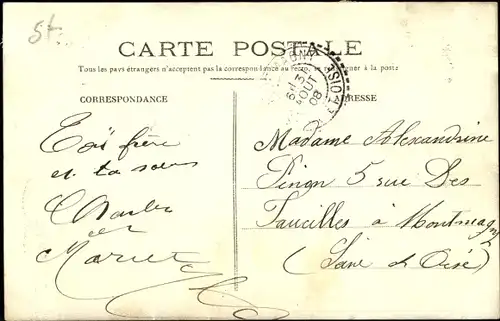 CARTE POSTALE
Tous les pays étrangers n'acceptent pas la correspondance au recto se renseigner à la poste
CORRESPONDANCE
ADRESSE
Ton frère
et ta soeur
Charles
et
Mariet
Madame Alexandrine
5 rue Des
Faucilles à Montmagny
(Seine et Oise)
31
AOUT
08